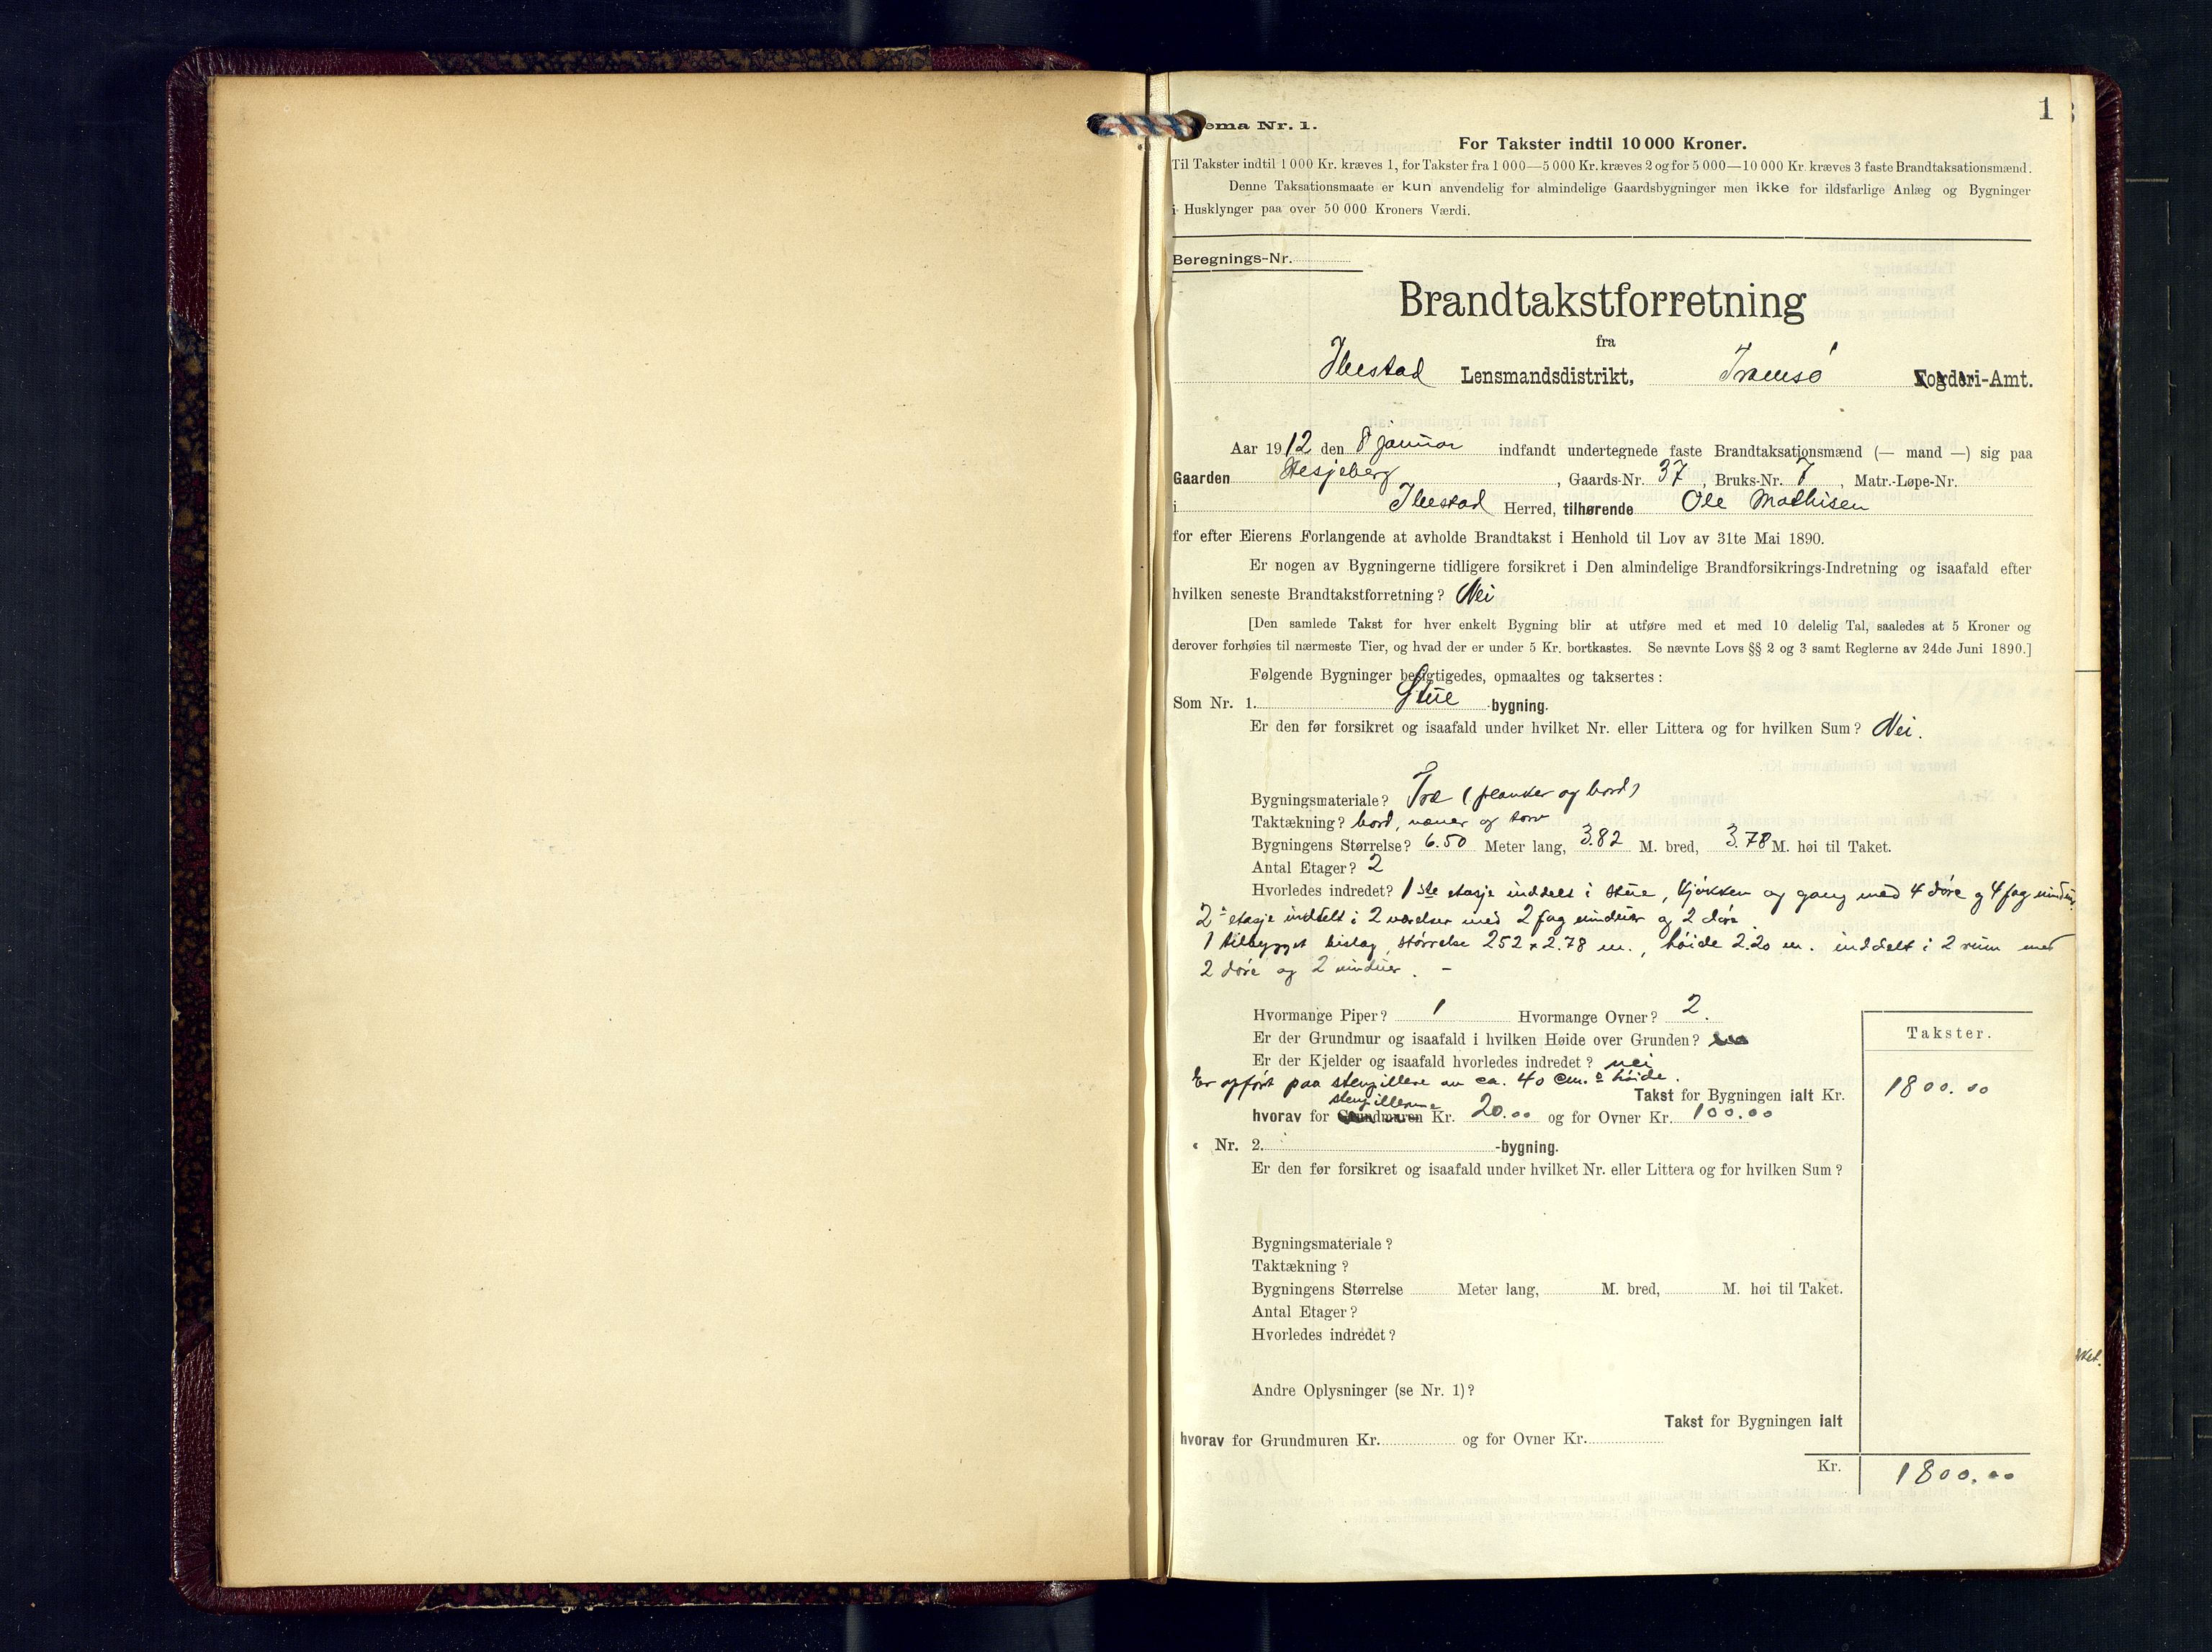 1
ema Nr. 1.
For Takster indtil 10 000 Kroner.
Til Takster indtil 1 000 Kr. kræves 1, for Takster fra 1 000—5 000 Kr. kræves 2 og for 5 000—10 000 Kr. kræves 3 faste Brandtaksationsmænd.
Denne Taksationsmaate er kun anvendelig for almindelige Gaardsbygninger men ikke for ildsfarlige Anlæg og Bygninger
i Husklynger paa over 50 000 Kroners Værdi.
Beregnings-Nr.
Brandtakstforretning
fra
Ibestad Lensmandsdistrikt, Tromsö Fogderi-Amt.
Aar 1912 den 8 januar indfandt undertegnede faste Brandtaksationsmænd (— mand —) sig paa
Gaarden Hesjeberg, Gaards-Nr. 37, Bruks-Nr. 7, Matr.-Løpe-Nr.
i Ibestad Herred, tilhørende Ole Mathisen
for efter Eierens Forlangende at avholde Brandtakst i Henhold til Lov av 31te Mai 1890.
Er nogen av Bygningerne tidligere forsikret i Den almindelige Brandforsikrings-Indretning og isaafald efter
hvilken seneste Brandtakstforretning? Nei
[Den samlede Takst for hver enkelt Bygning blir at utføre med et med 10 delelig Tal, saaledes at 5 Kroner og
derover forhøies til nærmeste Tier, og hvad der er under 5 Kr. bortkastes. Se nævnte Lovs §§ 2 og 3 samt Reglerne av 24de Juni 1890.]
Følgende Bygninger besigtigedes, opmaaltes og taksertes:
Som Nr. 1. Stue -bygning.
Er den før forsikret og isaafald under hvilket Nr. eller Littera og for hvilken Sum? Nei.
Bygningsmateriale? Træ (planker og bord)
Taktækning? bord, næver og torv
Bygningens Størrelse? 6.50 Meter lang, 3.82 M. bred, 3.78 M. høi til Taket.
Antal Etager? 2
Hvorledes indredet? 1ste etasje inddelt i stue, kjökken og gang med 4 döre og 4 fag vinduer.
2 etasje inddelt i 2 værelser med 2 fag vinduer og 2 döre
1 tilbygget bislag, störrelse 252 x 2.78 m., höide 2.20 m. inddelt i 2 rum med
2 döre og 2 vinduer. –
Hvormange Piper? 1 Hvormange Ovner? 2.
Er der Grundmur og isaafald i hvilken Høide over Grunden?
Er der Kjelder og isaafald hvorledes indredet? nei
Er opfört paa stenpillere av ca. 40 cm.s höide.
Takster.
Takst for Bygningen ialt Kr. 1800.00
stenpillerne
hvorav for Grundmuren Kr. 20.00 og for Ovner Kr. 100.00
« Nr. 2. -bygning.
Er den før forsikret og isaafald under hvilket Nr. eller Littera og for hvilken Sum?
Bygningsmateriale?
Taktækning?
Bygningens Størrelse Meter lang, M. bred, M. høi til Taket.
Antal Etager?
Hvorledes indredet?
Andre Oplysninger (se Nr. 1)?
Takst for Bygningen ialt
hvorav for Grundmuren Kr. og for Ovner Kr.
Kr. 1800.00